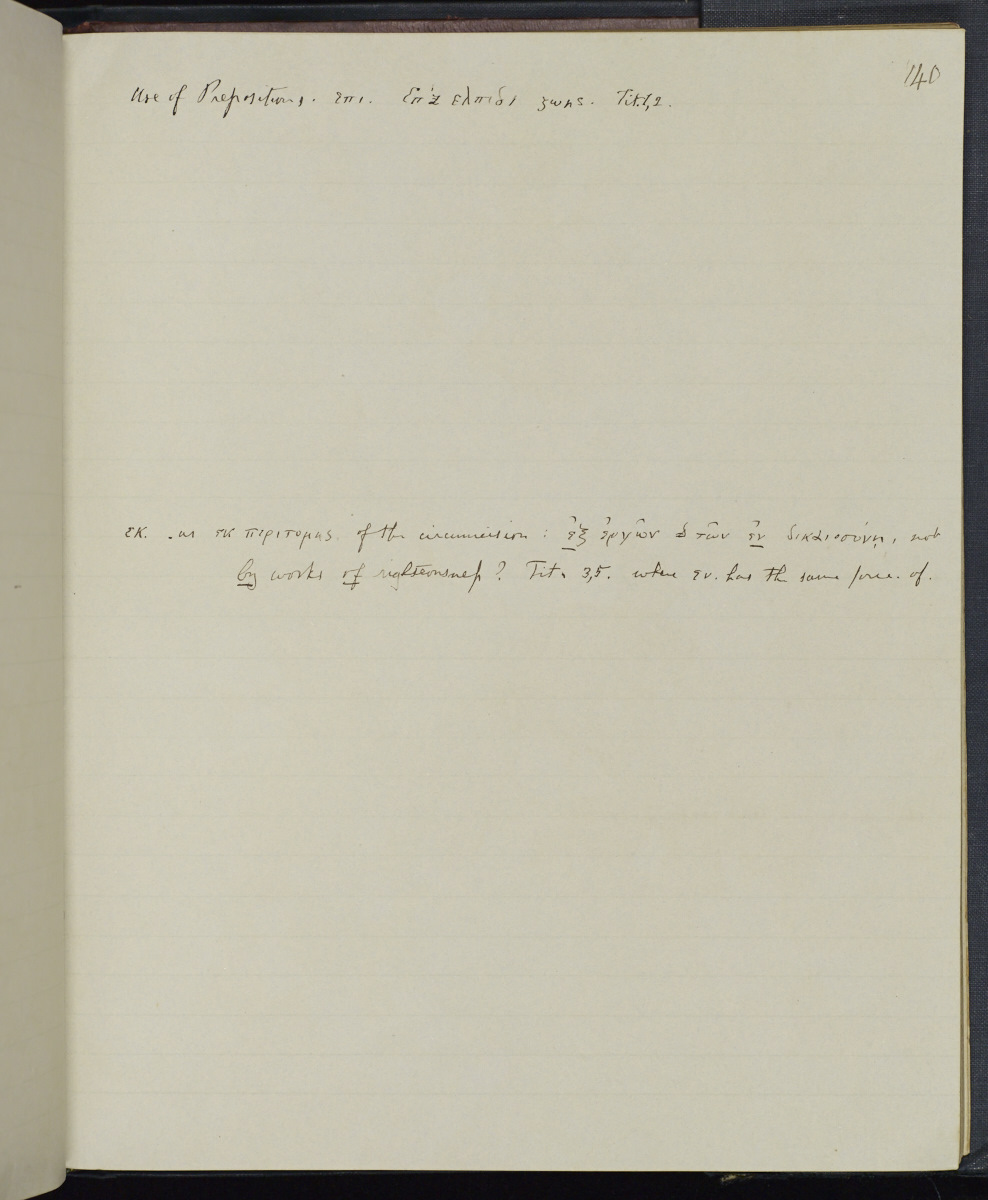 140
Use of Prepositions. επι. ἐπ' ελπιδι ζωης. Tit. 1,2.
εκ. as εκ περιτομης of the circumcision: ἐξ ἐργῶν τῶν ἐν δικαιοσύνῃ, not
by works of righteousness? Tit. 3,5. where εν. has the same force. of.